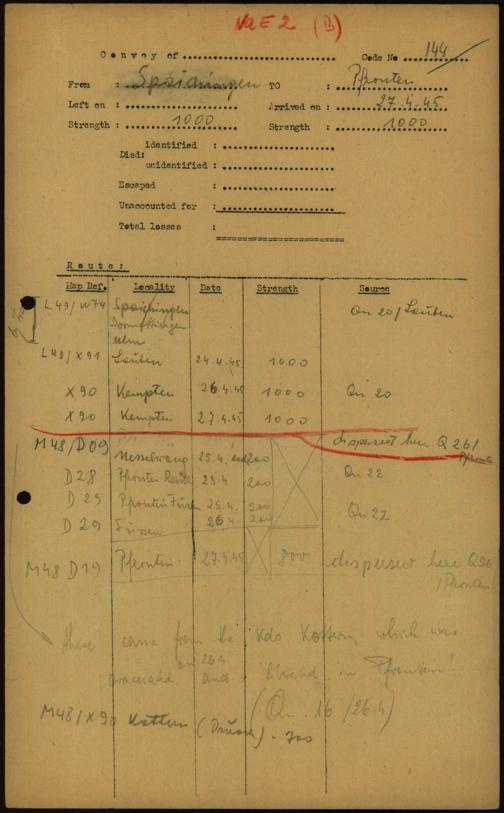 Na E 2 (B)
Convoy of .................... Code No 144
From Spaichingen TO : Pfronten
Left on : .................... Arrived on : 27.4.45
Strength : 1000 Strength : 1000
identified : ....................
Died:
unidentified : ....................
Escaped : ....................
Unaccounted for : ....................
Total losses :
Route:
Map Ref. Locality Date Strength Source
L49/W74 Spaichingen Qn 20/Leuben
Dormettingen
Ulm
L49/X91 Leuben 24.4.45 1000
X90 Kempten 26.4.45 1000 Qn 20
X90 Kempten 27.4.45 1000
M48/D09 Nesselwang 25.4. 200 dispersed here Q 26/
D28 Pfronten Reute 25.4 200 Qn 22
D29 Pfronten Füssen 25.4. 200
D29 Füssen 26.4 200 Qn 22
M48 D19. Pfronten 27.4.45 800 dispersed here Q26
these came from the Kdo Kottern, which was
on 26.4.
evacuated and liberated in Pfronten!
M48/X90 Kottern (Dachau). 700 (Qn. 16/26.4)